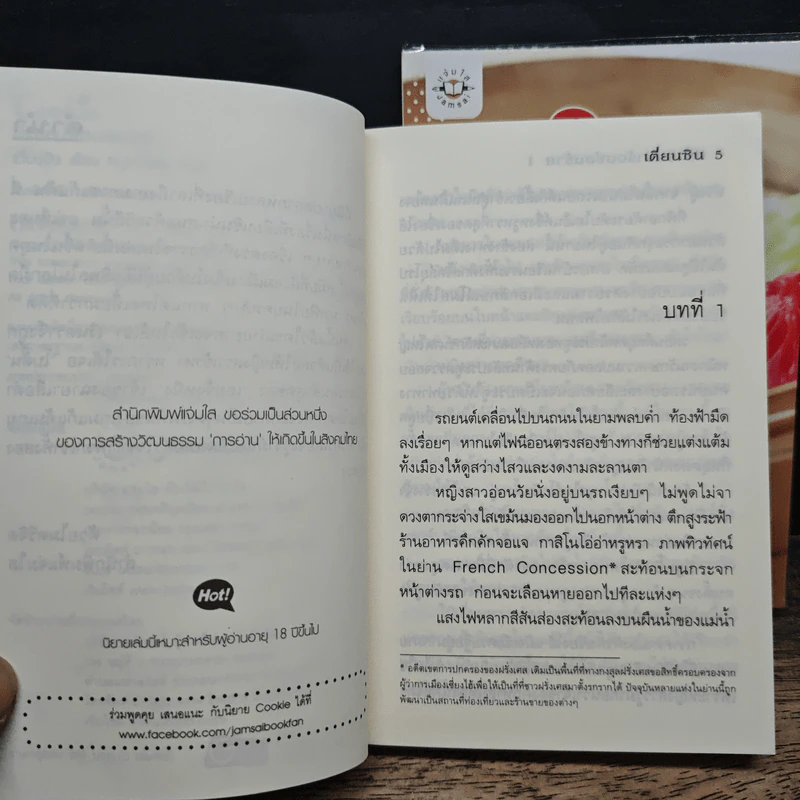 สำนักพิมพ์แจ่มใส ขอร่วมเป็นส่วนหนึ่ง
ของการสร้างวัฒนธรรม 'การอ่าน' ให้เกิดขึ้นในสังคมไทย
Hot!
นิยายเล่มนี้เหมาะสำหรับผู้อ่านอายุ 18 ปีขึ้นไป
ร่วมพูดคุย เสนอแนะ กับนิยาย Cookie ได้ที่
www.facebook.com/jamsaibookfan
แจ่มใส
Jamsai
เตี่ยนซิน 5
บทที่ 1
รถยนต์เคลื่อนไปบนถนนในยามพลบค่ำ ท้องฟ้ามืด
ลงเรื่อยๆ หากแต่ไฟนีออนตรงสองข้างทางก็ช่วยแต่งแต้ม
ทั้งเมืองให้ดูสว่างไสวและงดงามละลานตา
หญิงสาวอ่อนวัยนั่งอยู่บนรถเงียบๆ ไม่พูดไม่จา
ดวงตากระจ่างใสเขม้นมองออกไปนอกหน้าต่าง ตึกสูงระฟ้า
ร้านอาหารคึกคักจอแจ กาสิโนโอ่อ่าหรูหรา ภาพทิวทัศน์
ในย่าน French Concession* สะท้อนบนกระจก
หน้าต่างรถ ก่อนจะเลือนหายออกไปทีละแห่งๆ
แสงไฟหลากสีสันส่องสะท้อนลงบนผืนน้ำของแม่น้ำ
* อดีตเขตการปกครองของฝรั่งเศส เดิมเป็นพื้นที่ที่ทางกงสุลฝรั่งเศสขอสิทธิ์ครอบครองจาก
ผู้ว่าการเมืองเซี่ยงไฮ้เพื่อให้เป็นที่ที่ชาวฝรั่งเศสมาตั้งรกรากได้ ปัจจุบันหลายแห่งในย่านนี้ถูก
พัฒนาเป็นสถานที่ท่องเที่ยวและร้านขายของต่างๆ